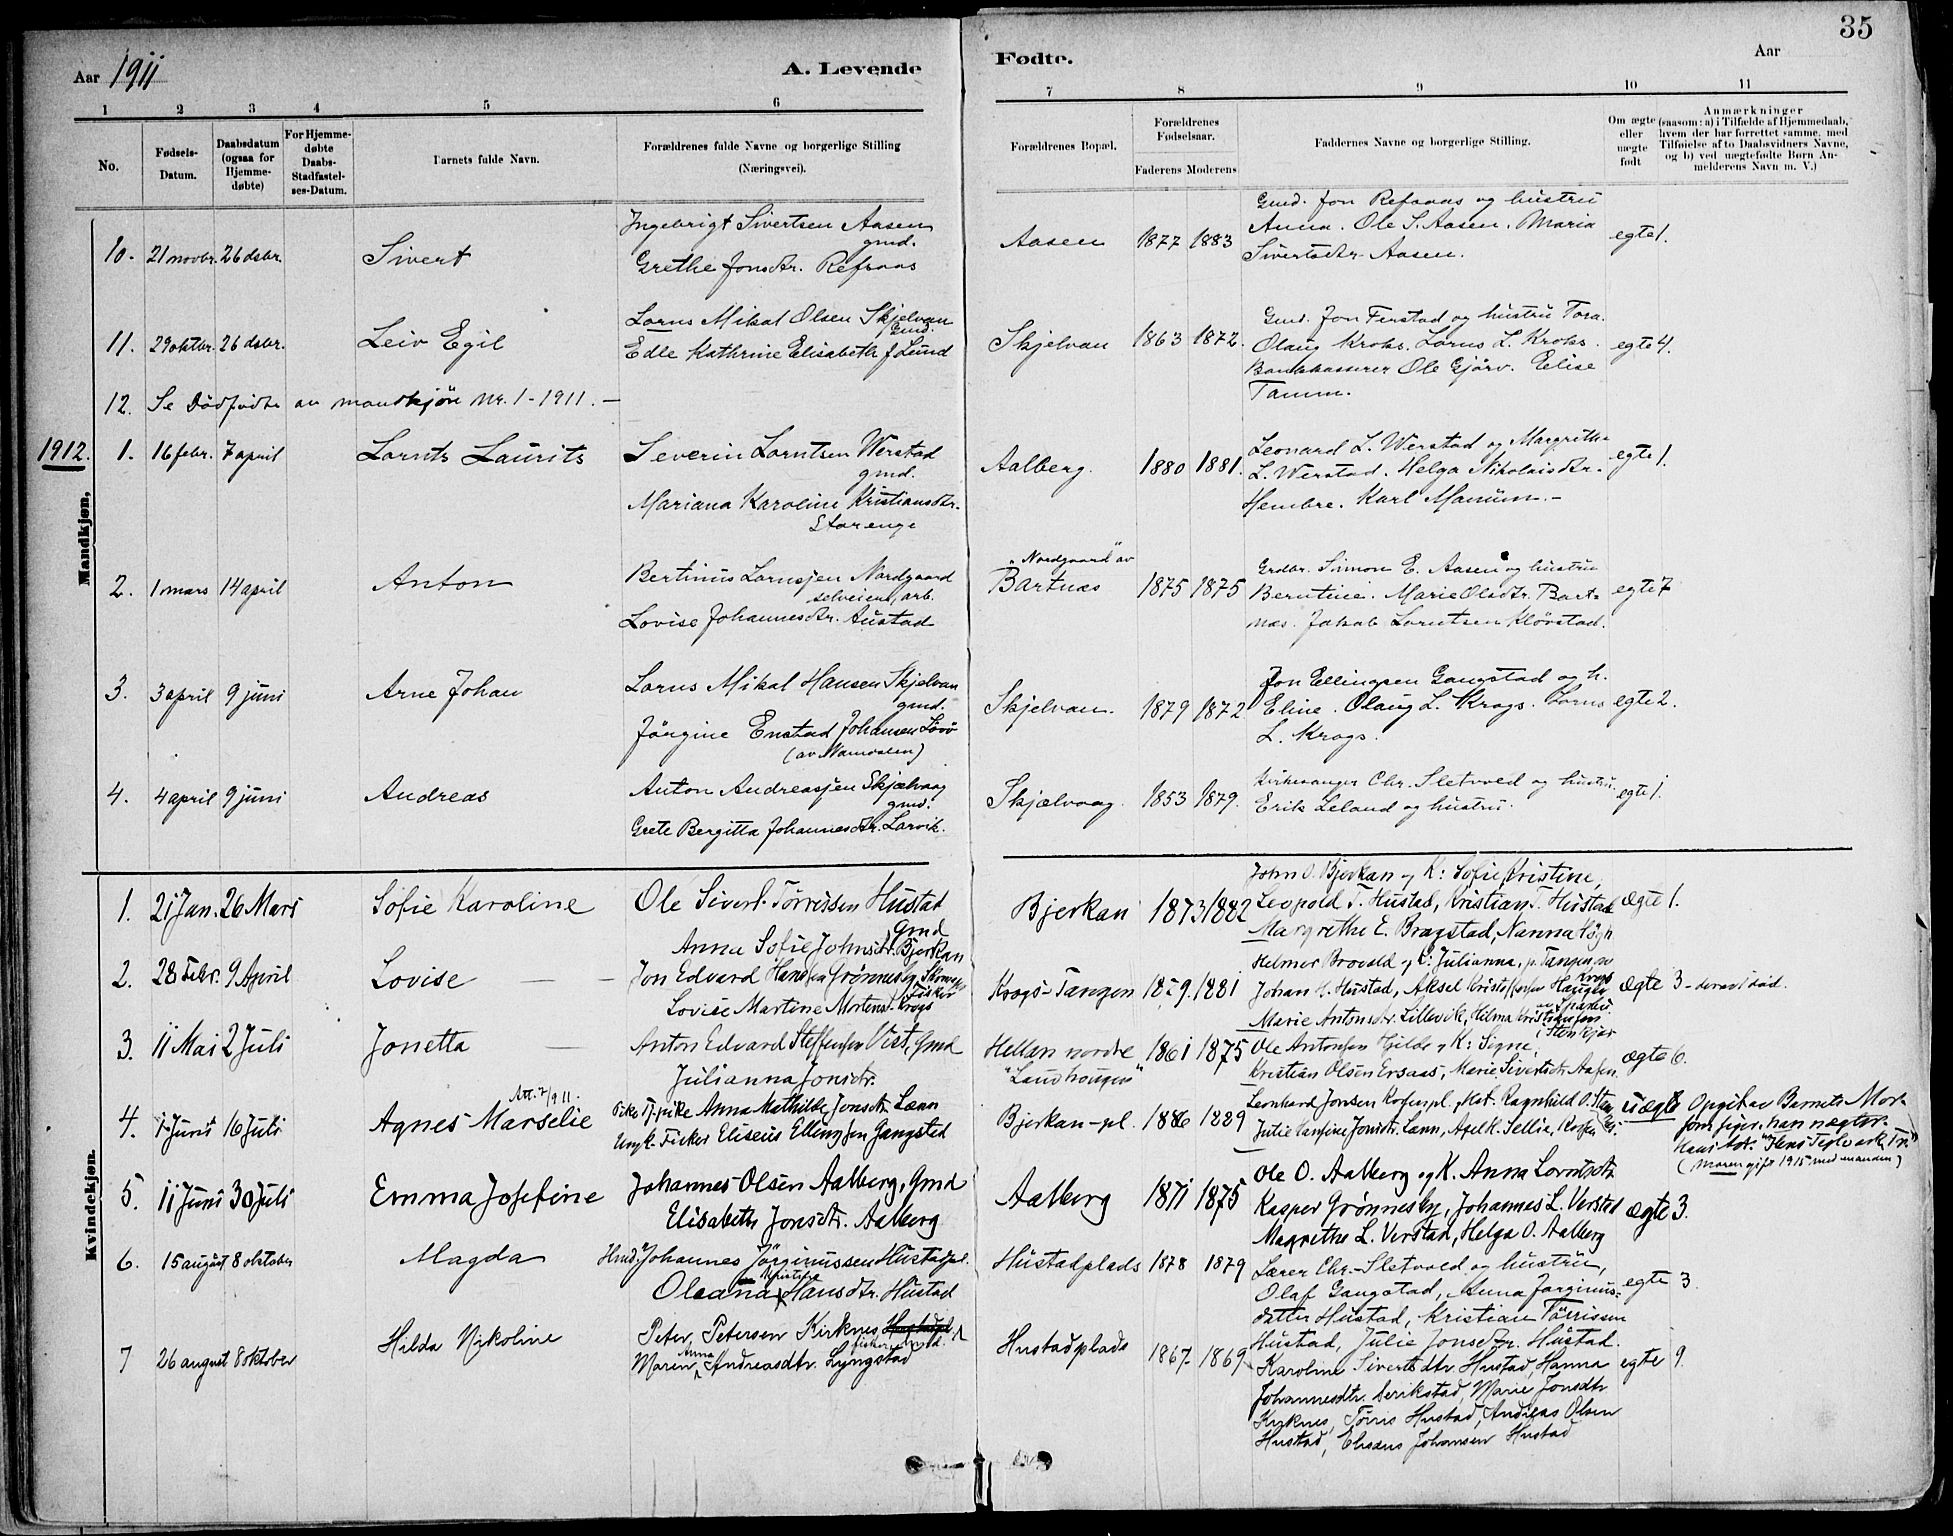 35
Aar 1911
A. Levende
Fødte.
Aar
1 2 3 4 5 6 7 8 9 10 11
No.
Fødsels-
Datum.
Daabsdatum
(ogsaa for
Hjemme-
døbte)
For Hjemme-
døbte
Daabs-
Stadfæstel-
ses-Datum.
Barnets fulde Navn.
Forældrenes fulde Navne og borgerlige Stilling
(Næringsvei).
Forældrenes Bopæl.
Forældrenes
Fødselsaar.
Faderens Moderens
Faddernes Navne og borgerlige Stilling.
Om ægte
eller
uægte
født
Anmærkninger
(saasom: a) i Tilfælde af Hjemmedaab,
hvem der har forrettet samme, med
Tilføielse af to Daabsvidners Navne,
og b) ved uægtefødte Børn An-
melderens Navn m. V.)
Mandkjøn.
10. 21 novbr. 26 dsbr. Sivert
Ingebrigt Sivertsen Aasen
gmd.
Grethe Jonsdtr. Refsaas
Aasen 1877 1883
Gmd. Jon Refsaas og hustru
Anna. Ole S. Aasen. Maria
Sivertsdtr. Aasen.
egte 1.
11. 29 oktbr. 26 dsbr. Leiv Egil
Lorns Mikal Olsen Skjelvan
Gmd.
Edle Kathrine Elisabeth f. Lund
Skjelvan 1863 1872.
Gmd. Jon Ferstad og hustru Tora.
Olaug Krohs. Lorns L. Krohs.
Bankkasserer Ole Gjørv. Elise
Tamm.
egte 4.
12. Se Dødfødte av mandkjøn Nr. 1 - 1911. -
1912.
1. 16 febr. 7 april Lornts Laurits
Severin Lorntsen Werstad
gmd.
Mariana Karoline Kristiansdtr.
Storenge
Aalberg. 1880 1881.
Leonard L. Werstad og Margrethe
L. Werstad. Helga Nikolaisdtr.
Hembre. Karl Manum. -
egte 1.
2. 1 mars 14 april Anton
Bertinus Lornsjen Nordgaard
selveiend, arb.
Lovise Johannesdtr. Austad
"Nordgaard" av
Bartnæs 1875 1875
Grdbr. Simon E. Aasen og hustru
Berntine. Marie Olsdtr. Bart-
næs. Jakob Lorntsen Kløvstad.
egte 7
3. 3 april 9 juni Arne Johan
Lorns Mikal Hansen Skjelvan
gmd.
Jørgine Enstad Johansen Løøv
(av Namdalen)
Skjelvan. 1879 1872
Jon Ellingsen Gangstad og h.
Eline. Olaug L. Krogs. Lorns
L. Krogs.
egte 2.
4. 4 april 9 juni Andreas
Anton Andreasjen Skjælvaag
gmd.
Grete Bergitta Johannesdtr. Larvik.
Skjælvaag. 1853 1879.
Kirkesanger Chr. Sletvold og hustru.
Erik Leland og hustru.
egte 1.
Kvindekjøn.
1. 21 Jan. 26 Mars Sofie Karoline
Ole Sivert Tørrissen Hustad
Gmd
Anna Sofie Johnsdtr. Bjerkan
Bjerkan 1873 1882
John O. Bjerkan og K: Sofie Kristine,
Leopold T. Hustad, Kristian T. Hustad
Margrethe E. Bragstad, Nanna Høgh
ægte 1.
2. 28 Febr. 9 April Lovise
Jon Edvard Hansen Grønnesby
Fisker
Lovise Martine Mortens. Krogs
Krogs-Tangen 1879. 1881
Helmer Brovold og K: Julianna, p. Tangen,
Johan H. Hustad, Aksel Kristoffersen Haugen
Marie Antonsdtr. Lillevik, Hilma Kristiansen
Stenkjær
ægte 3 - derav 1 død.
3. 11 Mai 2 Juli Jonetta
Anton Edvard Steffensen Vist, Gmd
Julianna Jonsdtr.
Hellan nordre
"Sandhougen" 1861 1875
Ole Antonsen Hjilde og K: Signe,
Kristian Olsen Ersaas, Marie Sivertsdtr Aasen
ægte 6.
4. 1 Juni 16 Juli Agnes Marselie
Att. 7/9 11.
Pike Tj.pike Anna Mathilde Jonsdtr. Lænn
Ungk. Fisker Eliseus Ellingsen Gangstad
Bjerkan-pl. 1886 1889
Leonhard Jonsen Korsenpl, Mat. Ragnhild O.
Julie Janfine Jonsdtr. Lænn, Axel K. Sellia,
uægte Opgit av Barnets Mor
som siger, han nægter.
(Moren gift 1915 med manden)
5. 11 Juni 30 Juli Emma Josefine
Johannes Olsen Aalberg, Gmd
Elisabeth Jonsdtr. Aalberg
Aalberg 1871 1875
Ole O. Aalberg og K. Anna Lorntsdtr.
Kasper Grønnesby, Johannes L. Verstad
Magrethe L. Verstad, Helga O. Aalberg
ægte 3.
6. 15 august 8 oktober Magda
Hmd. Johannes Jørginussen Hustadpl.
Oleana Kristine Hansdtr. Hustad
Hustadplads 1878 1879
Lærer Chr. Sletvold og hustru,
Olaf Gangstad, Anna Jørginus-
datter Hustad, Kristian Tørrissen
Hustad, Julie Jonsdtr. Hustad.
egte 3
7 26 august 8 oktober Hilda Nikoline
Peter Petersen Kirknes
fisker
Maren Anna Andreasdtr. Lyngstad
Hustadplads 1867 1869
Karoline Sivertsdtr. Hustad, Hanna
Johannesdtr. Derikstad, Marie Jonsdtr
Kirknes, Tørris Hustad, Andreas Olsen
Hustad, Eliseus Johansen Hustad
egte 9.